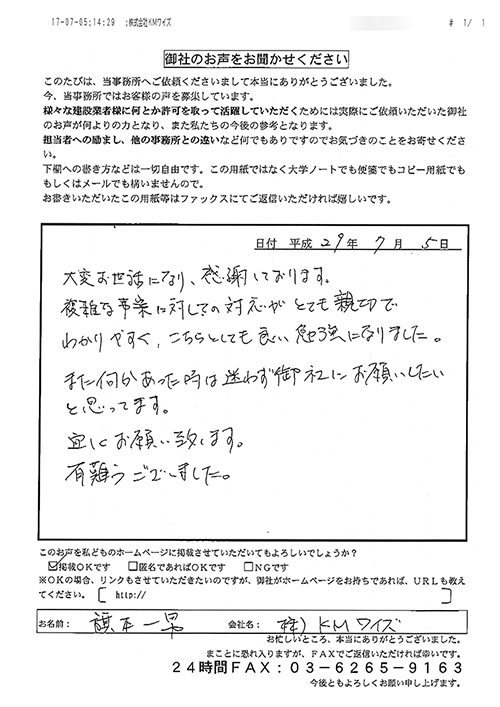 17-07-05;14:29 ;株式会社KMワイズ # 1/ 1
御社のお声をお聞かせください
このたびは、当事務所へご依頼くださいまして本当にありがとうございました。
今、当事務所ではお客様の声を募集しています。
様々な建設業者様に何とか許可を取って活躍していただくためには実際にご依頼いただいた御社
のお声が何よりの力となり、また私たちの今後の参考となります。
担当者への励まし、他の事務所との違いなど何でもありですのでお気づきのことをお寄せくださ
い。
下欄への書き方などは一切自由です。この用紙ではなく大学ノートでも便箋でもコピー用紙でも
もしくはメールでも構いませんので。
お書きいただいたこの用紙等はファックスにてご返信いただければ嬉しいです。
日付 平成 29年 7月 5日
大変お世話になり、感謝しております。
複雑な事案に対しての対応がとても親切で
わかりやすく、こちらとしても良い勉強になりました。
また何かあった時は迷わず御社にお願いしたい
と思ってます。
宜しくお願い致します。
有難うございました。
このお声を私どものホームページに掲載させていただいてもよろしいでしょうか?
☑掲載OKです □匿名であればOKです □NGです
※OKの場合、リンクもさせていただきたいのですが、御社がホームページをお持ちであれば、URLも教え
てください。 [ http:// ]
お名前: 橋本一 会社名: (株)KMワイズ
お忙しいところ、本当にありがとうございました。
まことに恐れ入りますが、FAXでご返信いただければ幸いです。
24時間FAX:03-6265-9163
今後ともよろしくお願い申し上げます。